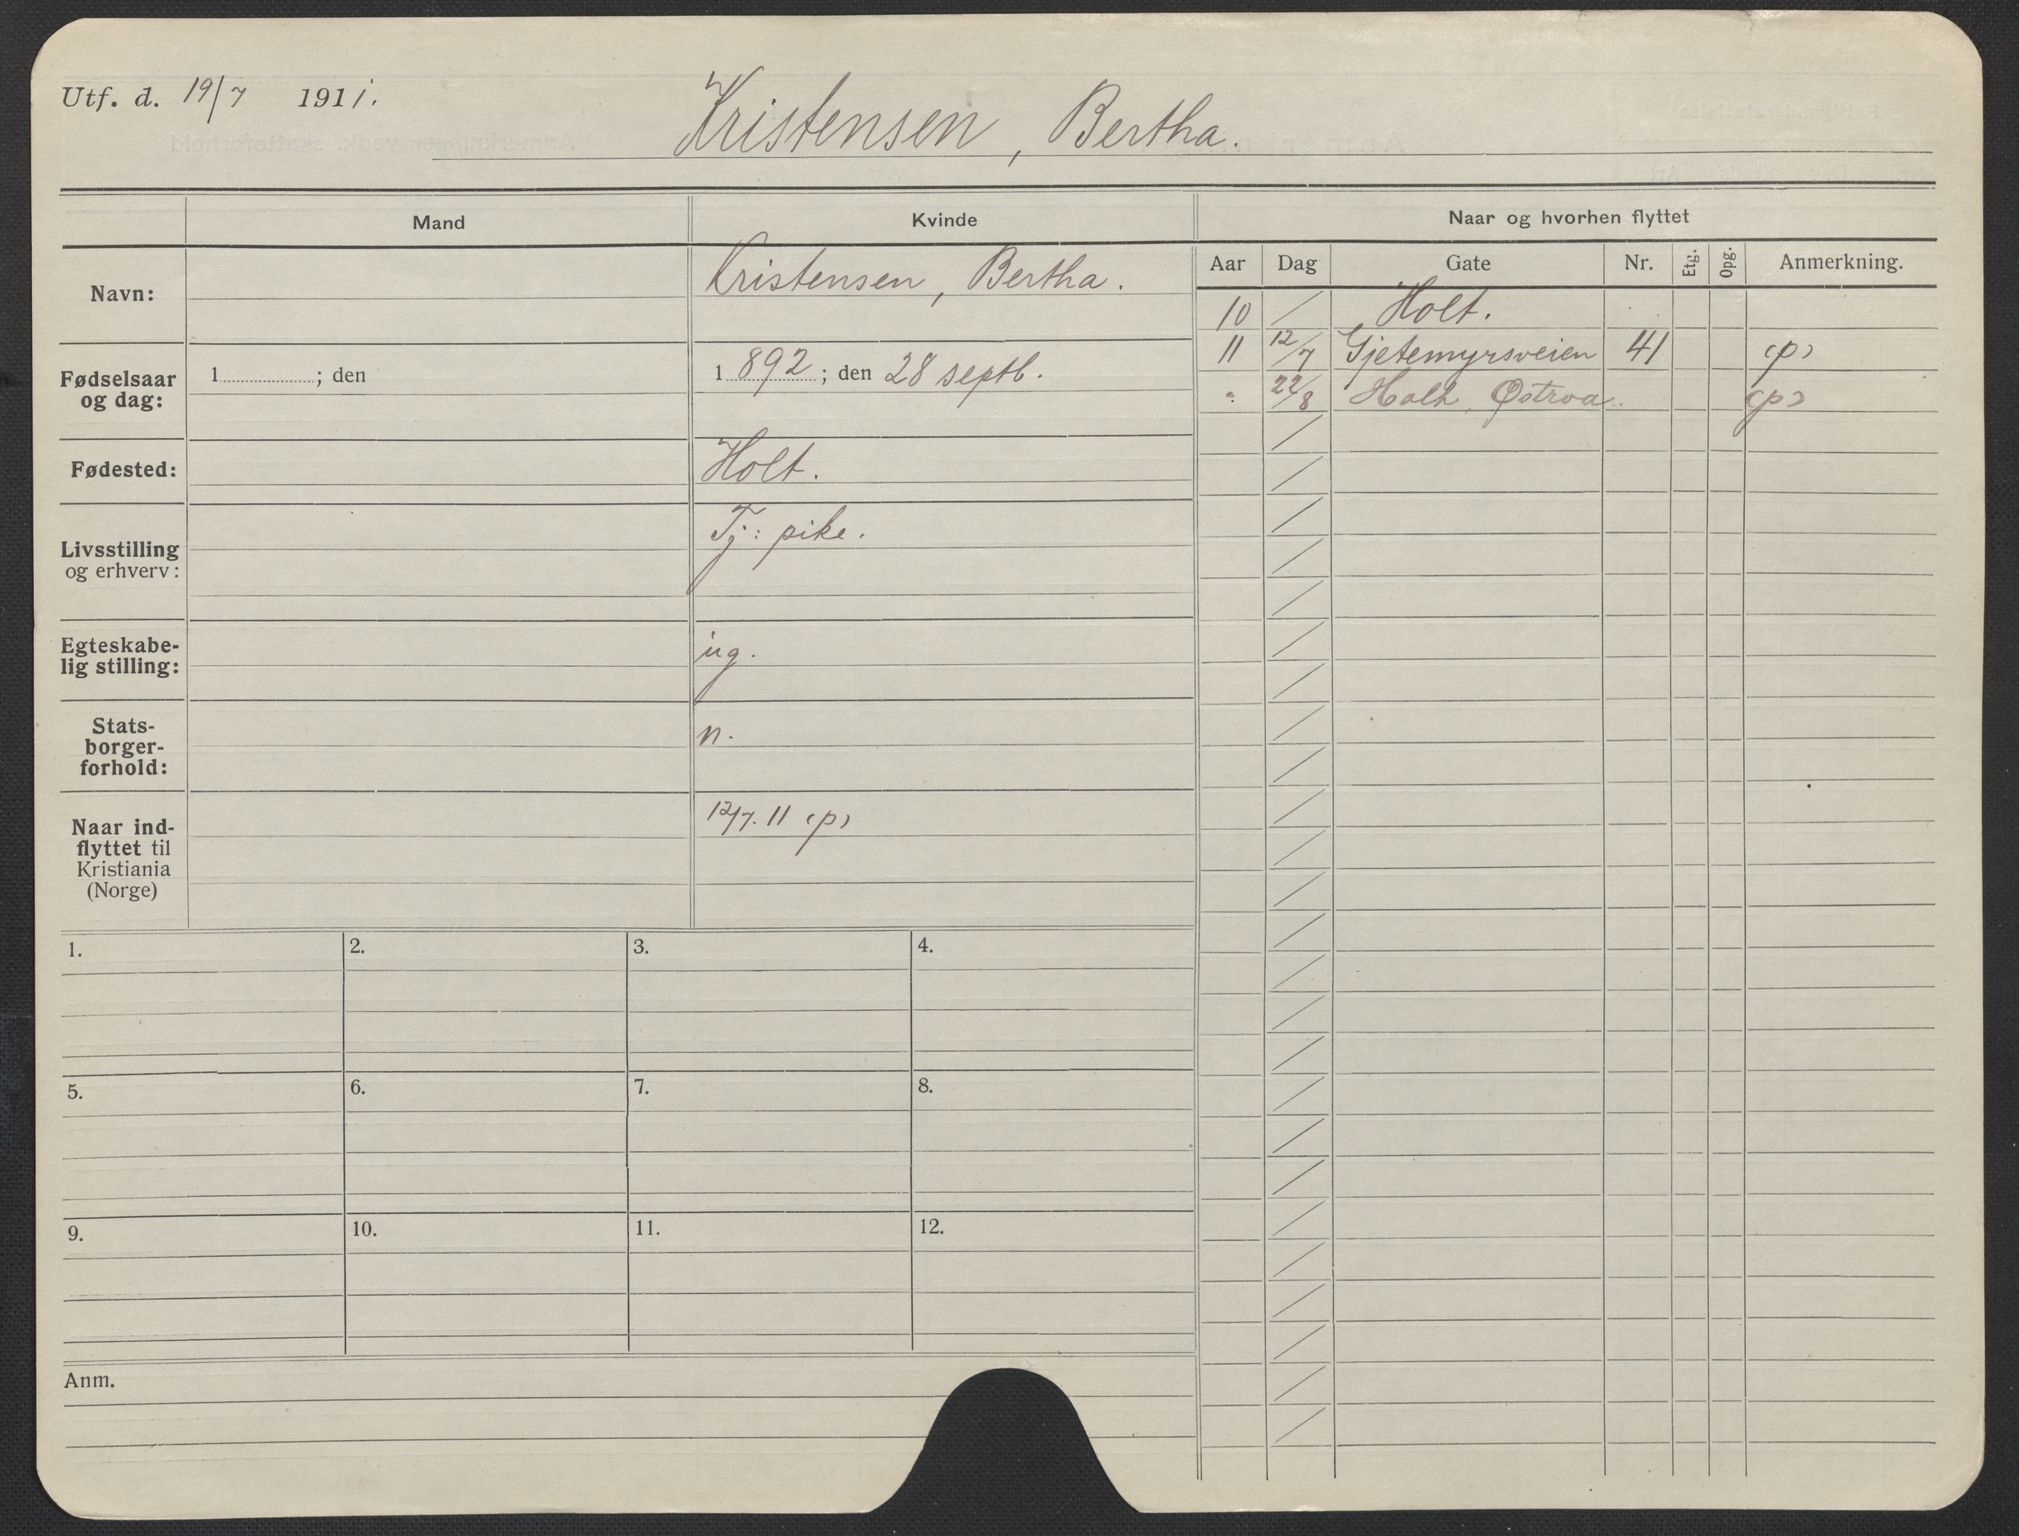 Utf. d. 19/7 1911.
Kristensen, Bertha.
Mand
Kvinde
Naar og hvorhen flyttet
Aar Dag Gate Nr. Etg. Opg. Anmerkning.
Navn: Kristensen, Bertha.
10 / Holt.
11 12/7 Gjetemyrsveien 41 (p)
" 22/8 Østroa. (p)
Fødselsaar
og dag:
1 ; den
1 892 ; den 28 septb.
Fødested: Holt.
Livsstilling
og erhverv:
Tj: pike.
Egteskabe-
lig stilling:
ug.
Stats-
borger-
forhold:
n.
Naar ind-
flyttet til
Kristiania
(Norge)
12/7. 11 (p)
1. 2. 3. 4.
5. 6. 7. 8.
9. 10. 11. 12.
Anm.